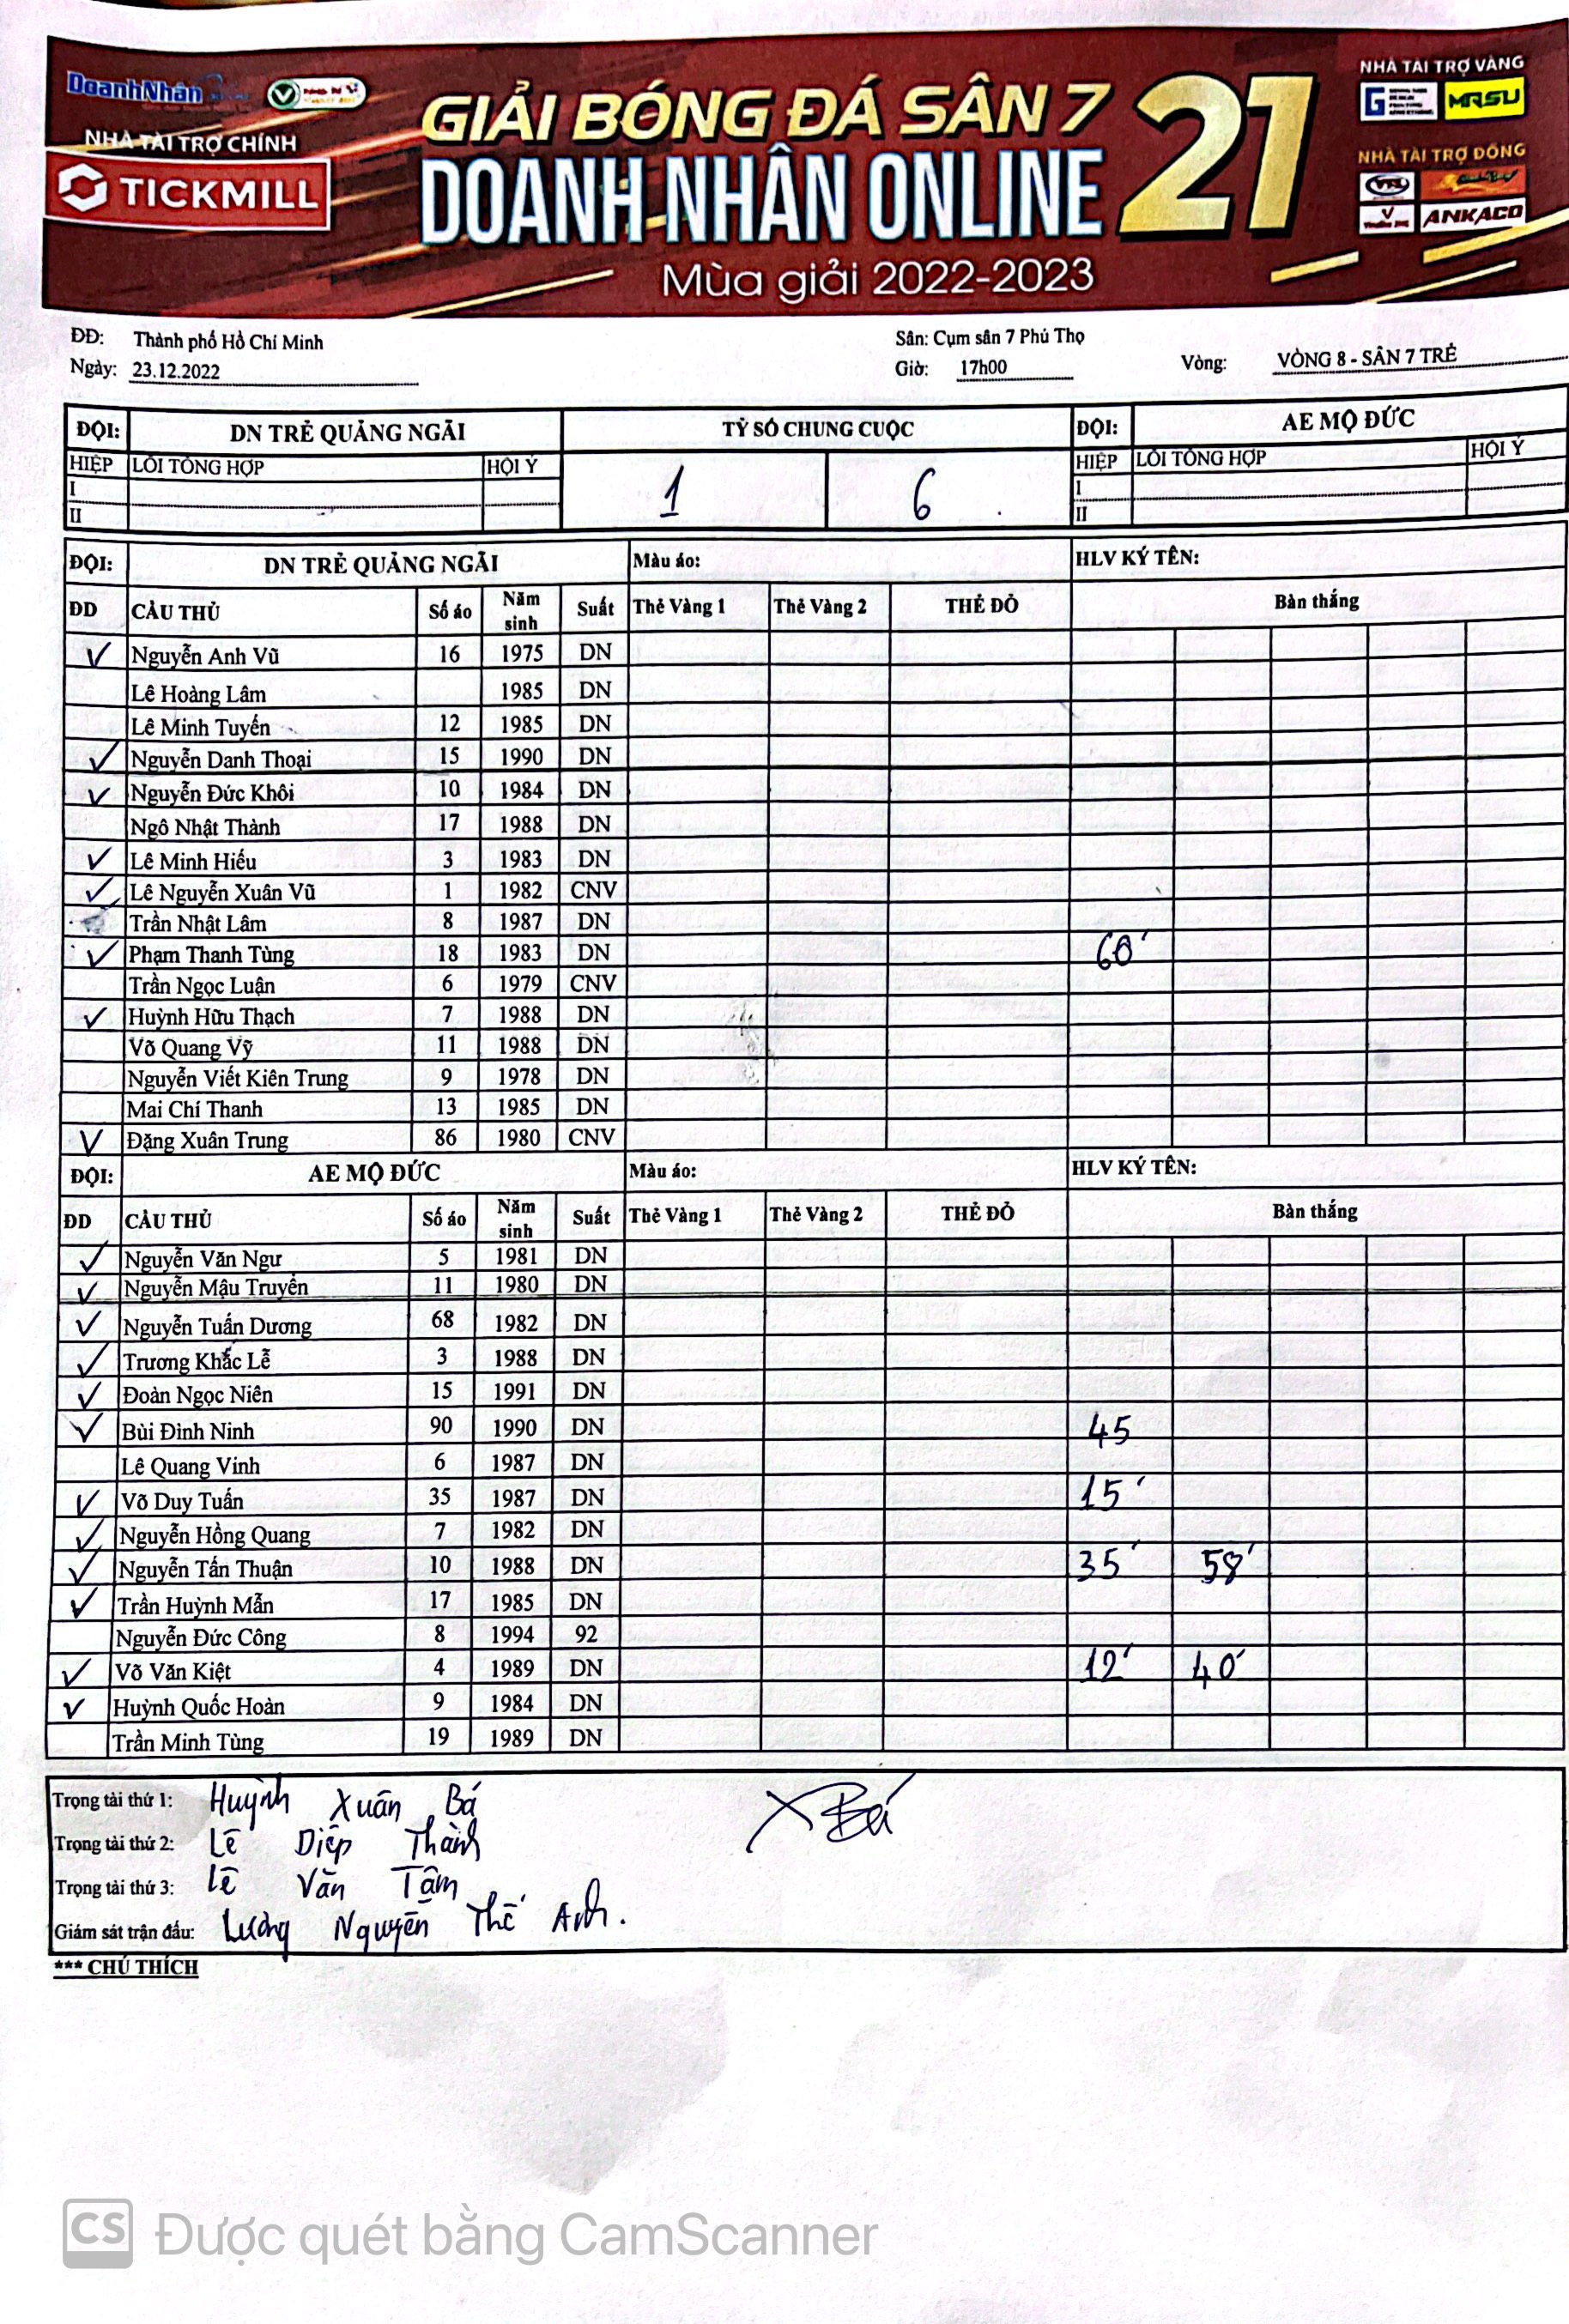 DoanhNhân
NHÀ TÀI TRỢ CHÍNH
TICKMILL
GIẢI BÓNG ĐÁ SÂN 7
DOANH NHÂN ONLINE
21
Mùa giải 2022-2023
NHÀ TÀI TRỢ VÀNG
G MRSU
NHÀ TÀI TRỢ ĐỒNG
ANKACO
ĐĐ: Thành phố Hồ Chí Minh Sân: Cụm sân 7 Phú Thọ
Ngày: 23.12.2022 Giờ: 17h00 Vòng: VÒNG 8 - SÂN 7 TRẺ
ĐỘI: DN TRẺ QUẢNG NGÃI TỶ SỐ CHUNG CUỘC ĐỘI: AE MỘ ĐỨC
HIỆP LỖI TỔNG HỢP HỘI Ý 1 6 HIỆP LỖI TỔNG HỢP HỘI Ý
I I
II II
ĐỘI: DN TRẺ QUẢNG NGÃI Màu áo: HLV KÝ TÊN:
ĐD CẦU THỦ Số áo Năm sinh Suất Thẻ Vàng 1 Thẻ Vàng 2 THẺ ĐỎ Bàn thắng
✓ Nguyễn Anh Vũ 16 1975 DN
Lê Hoàng Lâm 1985 DN
Lê Minh Tuyến 12 1985 DN
✓ Nguyễn Danh Thoại 15 1990 DN
✓ Nguyễn Đức Khôi 10 1984 DN
Ngô Nhật Thành 17 1988 DN
✓ Lê Minh Hiếu 3 1983 DN
✓ Lê Nguyễn Xuân Vũ 1 1982 CNV
Trần Nhật Lâm 8 1987 DN
✓ Phạm Thanh Tùng 18 1983 DN 60'
Trần Ngọc Luận 6 1979 CNV
✓ Huỳnh Hữu Thạch 7 1988 DN
Võ Quang Vỹ 11 1988 DN
Nguyễn Viết Kiên Trung 9 1978 DN
Mai Chí Thanh 13 1985 DN
✓ Đặng Xuân Trung 86 1980 CNV
ĐỘI: AE MỘ ĐỨC Màu áo: HLV KÝ TÊN:
ĐD CẦU THỦ Số áo Năm sinh Suất Thẻ Vàng 1 Thẻ Vàng 2 THẺ ĐỎ Bàn thắng
✓ Nguyễn Văn Ngư 5 1981 DN
✓ Nguyễn Mậu Truyền 11 1980 DN
✓ Nguyễn Tuấn Dương 68 1982 DN
✓ Trương Khắc Lễ 3 1988 DN
✓ Đoàn Ngọc Niên 15 1991 DN
✓ Bùi Đình Ninh 90 1990 DN 45
Lê Quang Vinh 6 1987 DN
✓ Võ Duy Tuấn 35 1987 DN 15'
✓ Nguyễn Hồng Quang 7 1982 DN
✓ Nguyễn Tấn Thuận 10 1988 DN 35' 58'
✓ Trần Huỳnh Mẫn 17 1985 DN
Nguyễn Đức Công 8 1994 92
✓ Võ Văn Kiệt 4 1989 DN 12' 40'
✓ Huỳnh Quốc Hoàn 9 1984 DN
Trần Minh Tùng 19 1989 DN
Trọng tài thứ 1: Huỳnh Xuân Bá XBá
Trọng tài thứ 2: Lê Diệp Thành
Trọng tài thứ 3: Lê Văn Tâm
Giám sát trận đấu: Lương Nguyễn Thế Anh.
*** CHÚ THÍCH
CS Được quét bằng CamScanner